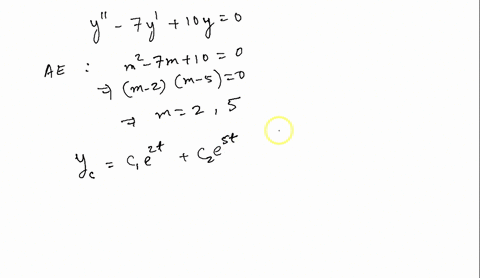 y'' - 7y' + 10y = 0
AE : m² - 7m + 10 = 0
⇒ (m-2) (m-5) = 0
⇒ m = 2 , 5
y_c = c₁e^{2t} + c₂e^{5t}